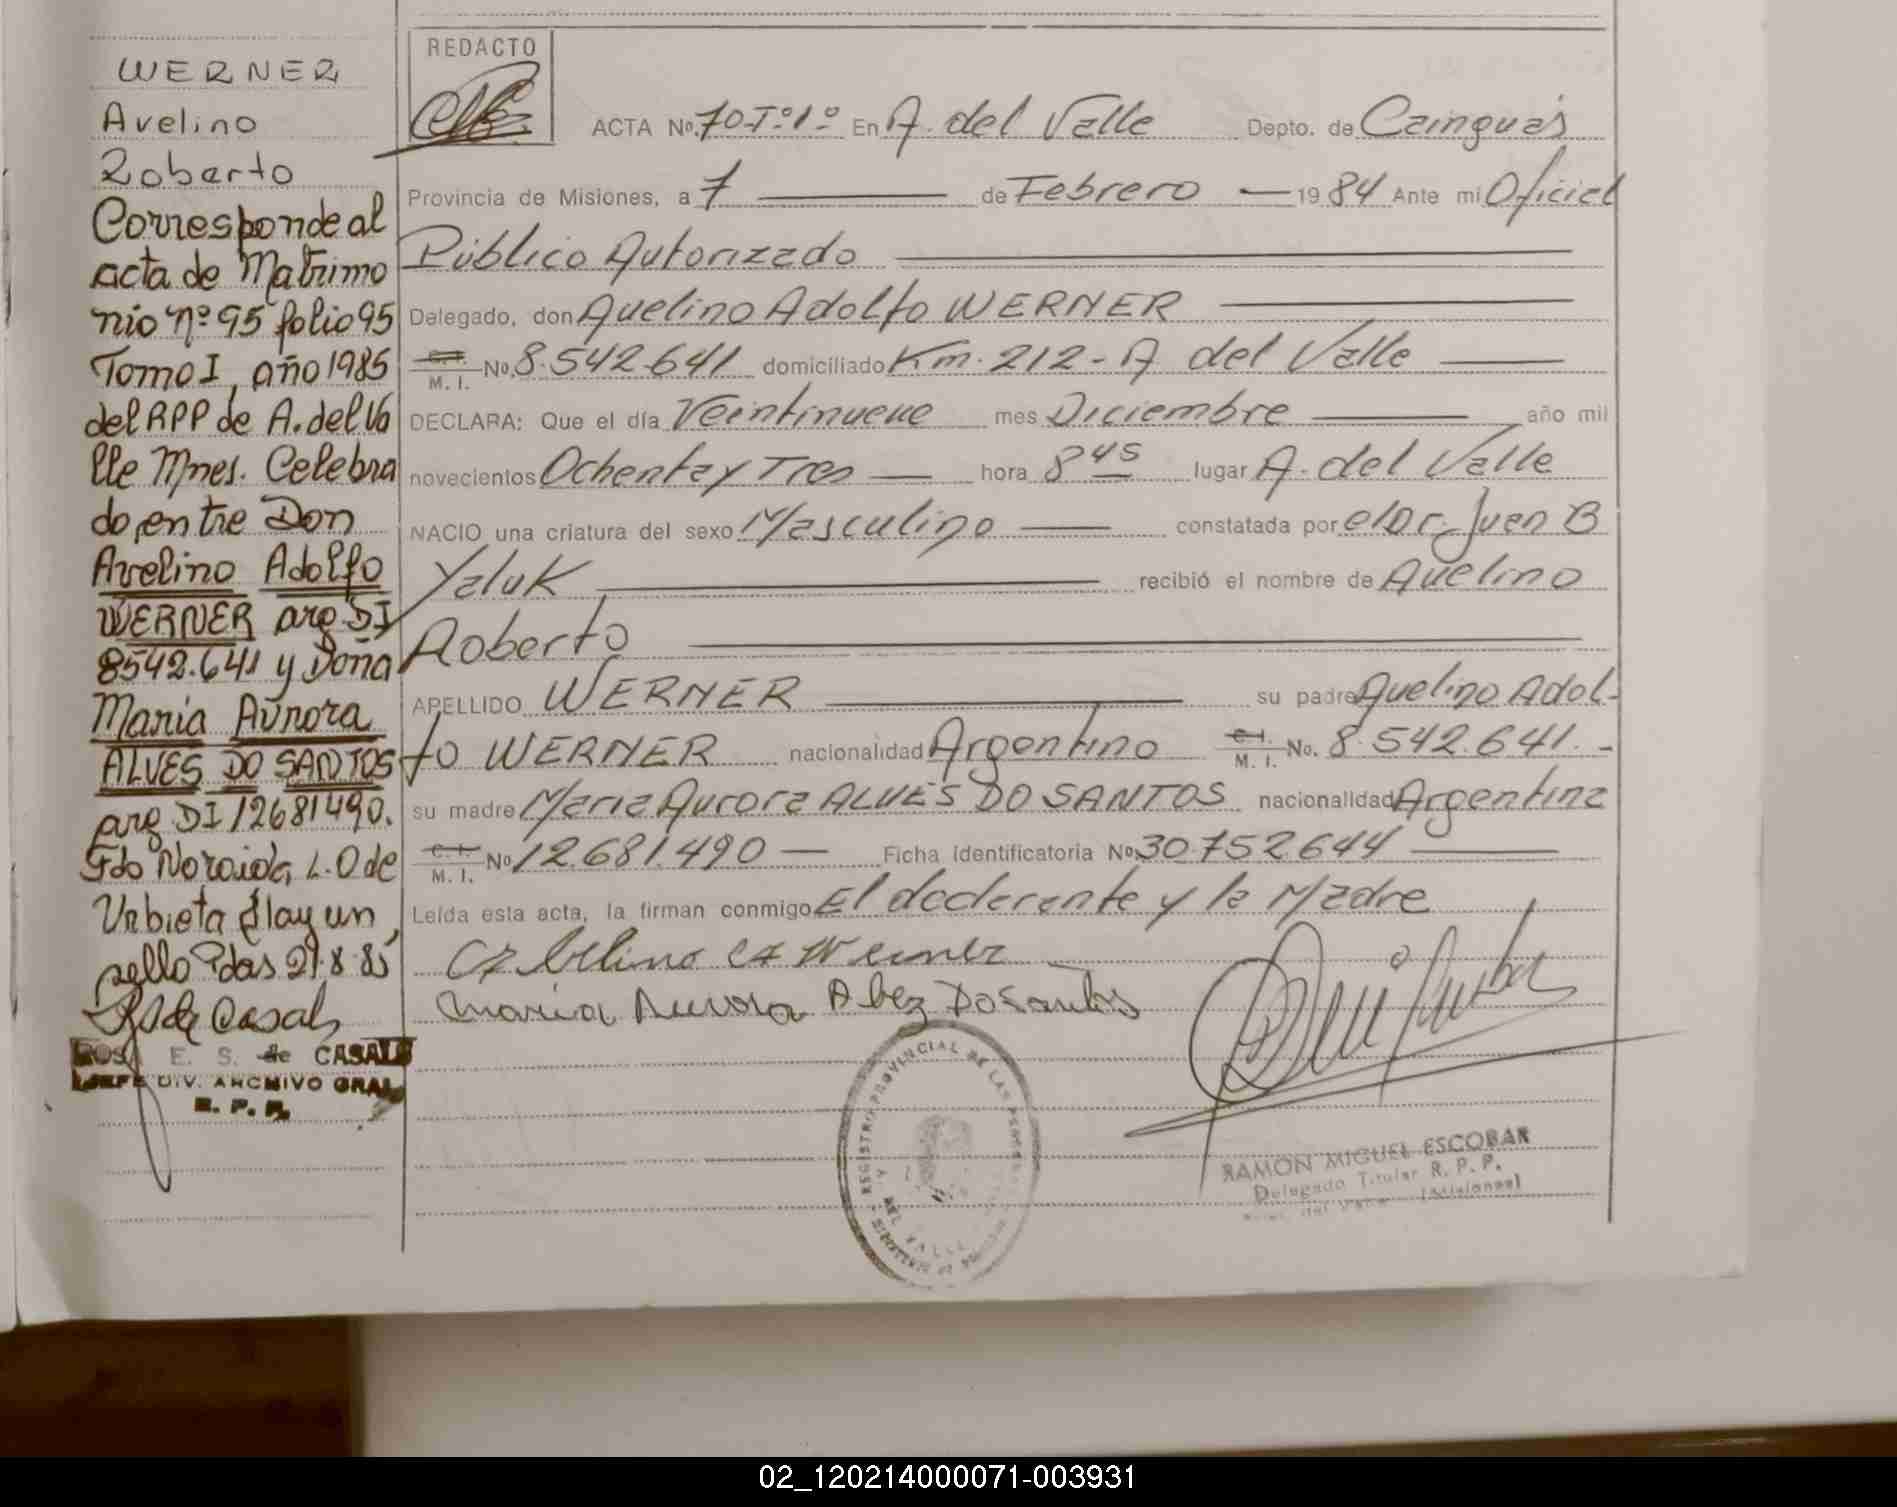 WERNER
Avelino
Roberto
Corresponde al
acta de Matrimo
nio nº 95 folio 95
Tomo I, año 1985
del RPP de A. del Va
lle Mnes. Celebra
do, entre Don
Avelino Adolfo
WERNER arg DI
8542.641 y Doña
Maria Aurora
ALVES DO SANTOS
arg DI 12681490.
Fdo Noroida L. O de
Urbieta Hay un
sello Pdas 21.8.85
de Casals
ROSA E. S. de CASALS
JEFE DIV. ARCHIVO GRAL
R. P. P.
REDACTO
ACTA No. 70-Tº1º En A. del Valle Depto. de Cainguás
Provincia de Misiones, a 7 de Febrero 1984 Ante mi Oficial
Público Autorizado
Delegado, don Avelino Adolfo WERNER
C.I. M. I. No. 8.542.641 domiciliado Km. 212 - A del Valle
DECLARA: Que el día Veintinueve mes Diciembre año mil
novecientos Ochenta y Tres hora 8 45 lugar A. del Valle
NACIO una criatura del sexo Masculino constatada por el Dr. Juan B
Yaluk recibió el nombre de Avelino
Roberto
APELLIDO WERNER su padre Avelino Adol-
fo WERNER nacionalidad Argentino C.I. M. I. No. 8.542.641.-
su madre Maria Aurora ALVES DO SANTOS nacionalidad Argentina
C.I. M. I. No 12.681.490 Ficha identificatoria No. 30.752644
Leída esta acta, la firman conmigo El declarante y la Madre
Werner
Maria Aurora Alvez Do Santos
REGISTRO PROVINCIAL DE LAS PERSONAS
DEL VALLE
RAMON MIGUEL ESCOBAR
Delegado Titular R. P. P.
del Valle (Misiones)
02_120214000071-003931